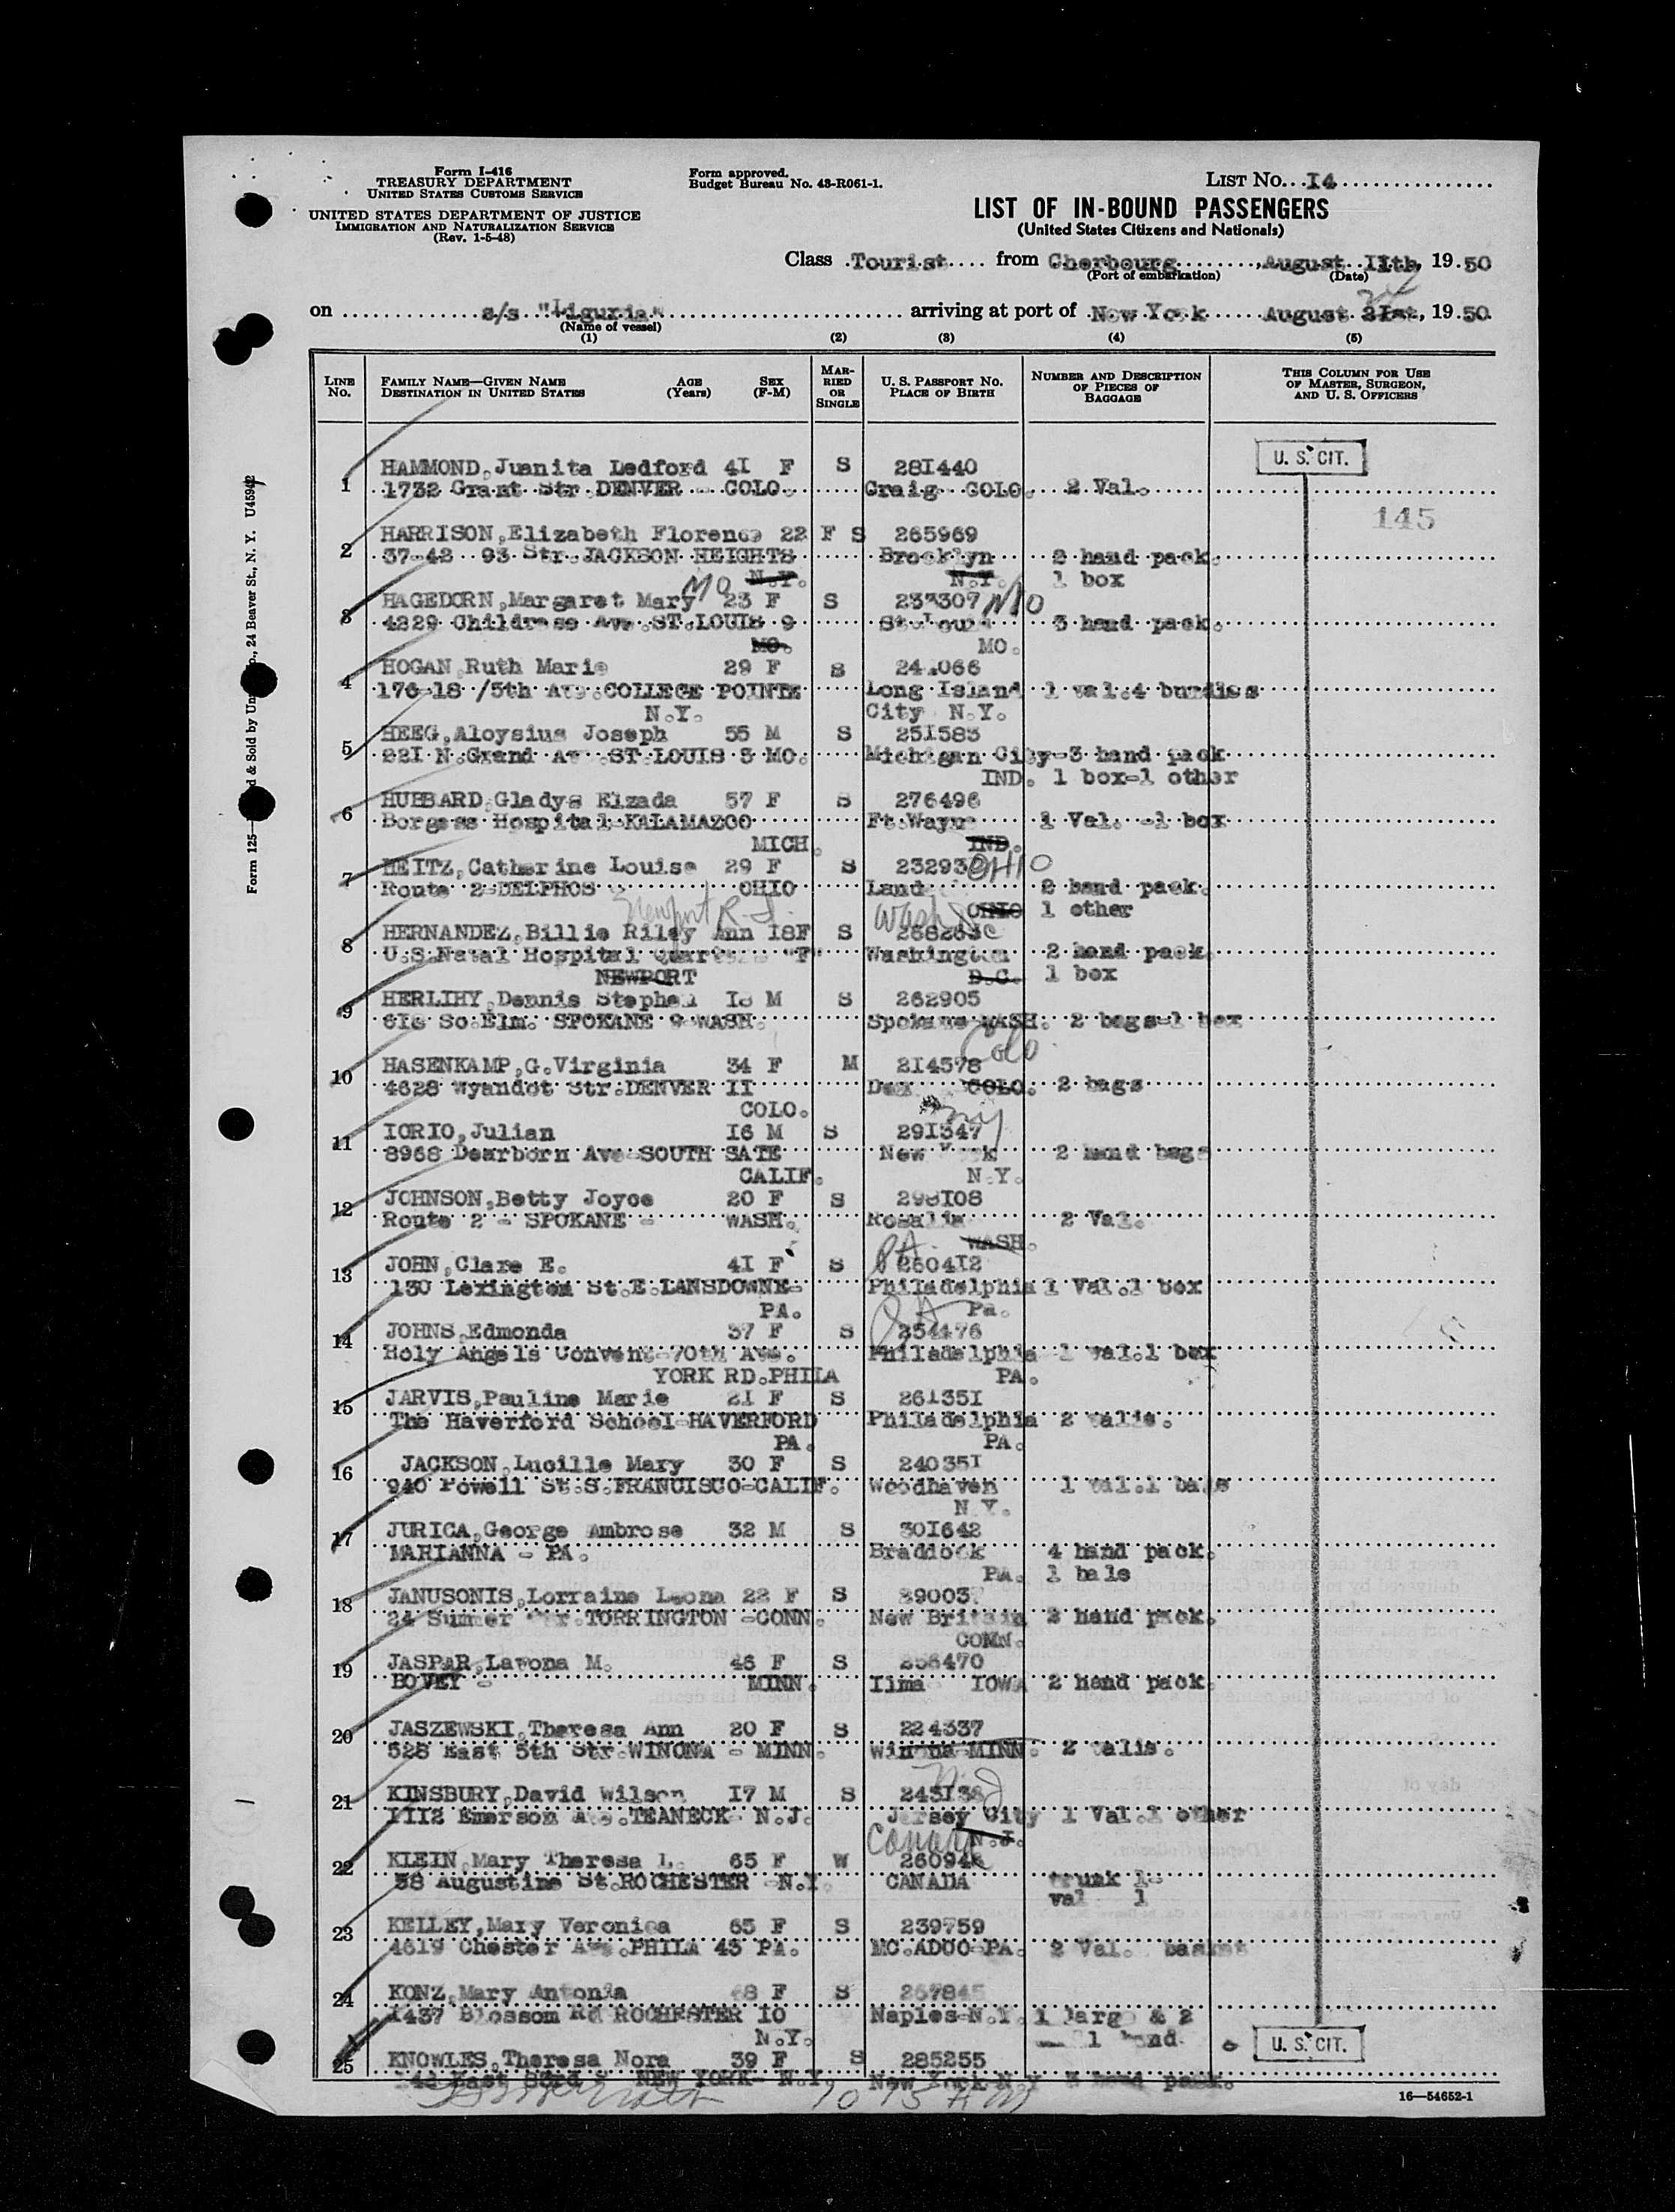 Form I-416
TREASURY DEPARTMENT
UNITED STATES CUSTOMS SERVICE
UNITED STATES DEPARTMENT OF JUSTICE
IMMIGRATION AND NATURALIZATION SERVICE
(Rev. 1-5-48)
Form approved.
Budget Bureau No. 43-R061-1.
LIST No. I4
LIST OF IN-BOUND PASSENGERS
(United States Citizens and Nationals)
Class Tourist from Cherbourg, August IIth, 19 50
(Port of embarkation) (Date)
on s/s "Liguria" arriving at port of New York August 2Ist, 19 50
(Name of vessel)
(1) (2) (3) (4) (5)
LINE No.
FAMILY NAME—GIVEN NAME AGE (Years) SEX (F-M)
DESTINATION IN UNITED STATES
MARRIED OR SINGLE
U. S. PASSPORT No. PLACE OF BIRTH
NUMBER AND DESCRIPTION OF PIECES OF BAGGAGE
THIS COLUMN FOR USE OF MASTER, SURGEON, AND U. S. OFFICERS
U. S. CIT.
145
HAMMOND, Juanita Ledford 4I F S 28I440
1 1732 Grant Str DENVER - COLO. Craig COLO. 2 Val.
HARRISON, Elizabeth Florence 22 F S 265969
2 37-42 93 Str. JACKSON HEIGHTS Brooklyn 2 hand pack.
N.Y. N.Y. 1 box
MO
HAGEDORN, Margaret Mary 23 F S 233307 MO
3 4229 Ave. ST. LOUIS 9 St. Louis 3 hand pack.
MO. MO.
HOGAN, Ruth Marie 29 F S
4 176-18 /5th Ave. COLLEGE POINTE Long Island 1 val. 4 bundles
N.Y. City N.Y.
HEEG, Aloysius Joseph 55 M S 25I583
5 22I N. Grand Av ST LOUIS 3 MO. Michigan City 3 hand pack
IND. 1 box-1 other
HUBBARD, Gladys Elzada 57 F S 276496
6 Borgess Hospital KALAMAZOO Ft. Wayne 1 Val. -1 box
MICH. IND.
HEITZ, Catherine Louise 29 F S OHIO
7 Route 2 DELPHOS OHIO Land 2 hand pack.
OHIO 1 other
Newport R.I. Wash
HERNANDEZ, Billie Riley Ann I8F S
8 U.S. Naval Hospital "F" Washington 2 hand pack.
NEWPORT D.C. 1 box
HERLIHY, Dennis Stephen M S 262905
9 So. Elm. SPOKANE 9 WASH. Spokane WASH. 2 bags-1 box
Colo
HASENKAMP, G. Virginia 34 F M 2I4578
10 4628 Wyandot Str. DENVER II COLO. 2 bags
COLO. NY
IORIO, Julian I6 M S 29I347
11 8968 Dearborn Ave SOUTH GATE New York 2 hand bags
CALIF. N.Y.
JOHNSON, Betty Joyce 20 F S 298I08
12 Route 2 - SPOKANE - WASH. Rosalia 2 Val.
WASH.
PA.
JOHN, Clare E. 4I F S 2604I2
13 130 Lexington St. E. LANSDOWNE- Philadelphia 1 Val. 1 box
PA. Pa.
PA
JOHNS, Edmonda 37 F S 254476
14 Holy Angels Convent-70th Ave. Philadelphia 1 val. 1 box
YORK RD. PHILA PA.
JARVIS, Pauline Marie 2I F S 26I35I
15 The Haverford School-HAVERFORD Philadelphia 2 valis.
PA. PA.
JACKSON, Lucille Mary 30 F S 24035I
16 940 Powell St. S. FRANCISCO-CALIF. Woodhaven 1 val. 1 bale
N.Y.
JURICA, George Ambrose 32 M S 30I642
17 MARIANNA - PA. Braddock 4 hand pack.
PA. 1 bale
JANUSONIS, Lorraine Leona 22 F S
18 24 Sumner Str. TORRINGTON -CONN. New Britain 2 hand pack.
CONN.
JASPAR, Lavona M. 46 F S
19 BOVEY - MINN. Ilma IOWA 2 hand pack.
JASZEWSKI, Theresa Ann 20 F S 224337
20 528 East 5th Str. WINONA - MINN. Winona MINN. 2 valis.
N.J
KINSBURY, David Wilson I7 M S
21 III2 Emerson Ave. TEANECK- N.J. Jersey City 1 Val. 1 other
Canada N.J.
KLEIN, Mary Theresa L. 65 F W
22 38 Augustine St. ROCHESTER -N.Y. CANADA trunk 1
val 1
KELLEY, Mary Veronica 65 F S 239759
23 4619 Chester Ave. PHILA 43 PA. MC. ADOO-PA. 2 Val. basket
KONZ, Mary Antonia F S
24 I437 Blossom Rd ROCHESTER IO Naples-N.Y. 1 large & 2
N.Y. 1 hand.
KNOWLES, Theresa Nora 39 F S 285255
25 East NEW YORK- N.Y. New York N Y 3 hand pack.
U. S. CIT.
10 15 AM
16—54652-1